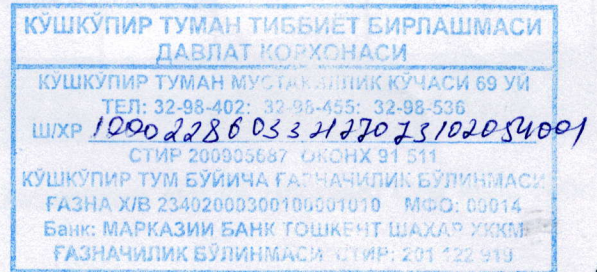 КЎШКЎПИР ТУМАН ТИББИЁТ БИРЛАШМАСИ
ДАВЛАТ КОРХОНАСИ
КЎШКЎПИР ТУМАН МУСТАКИЛЛИК КЎЧАСИ 69 УЙ
ТЕЛ: 32-98-402; 32-98-455; 32-98-536
Ш/ХР
СТИР 200905687 ОКОНХ 91 511
КЎШКЎПИР ТУМ БЎЙИЧА ҒАЗНАЧИЛИК БЎЛИНМАСИ
ҒАЗНА Х/В 23402000300100001010 МФО: 00014
Банк: МАРКАЗИЙ БАНК ТОШКЕНТ ШАХАР ХККМ
ҒАЗНАЧИЛИК БЎЛИНМАСИ СТИР: 201 122 919